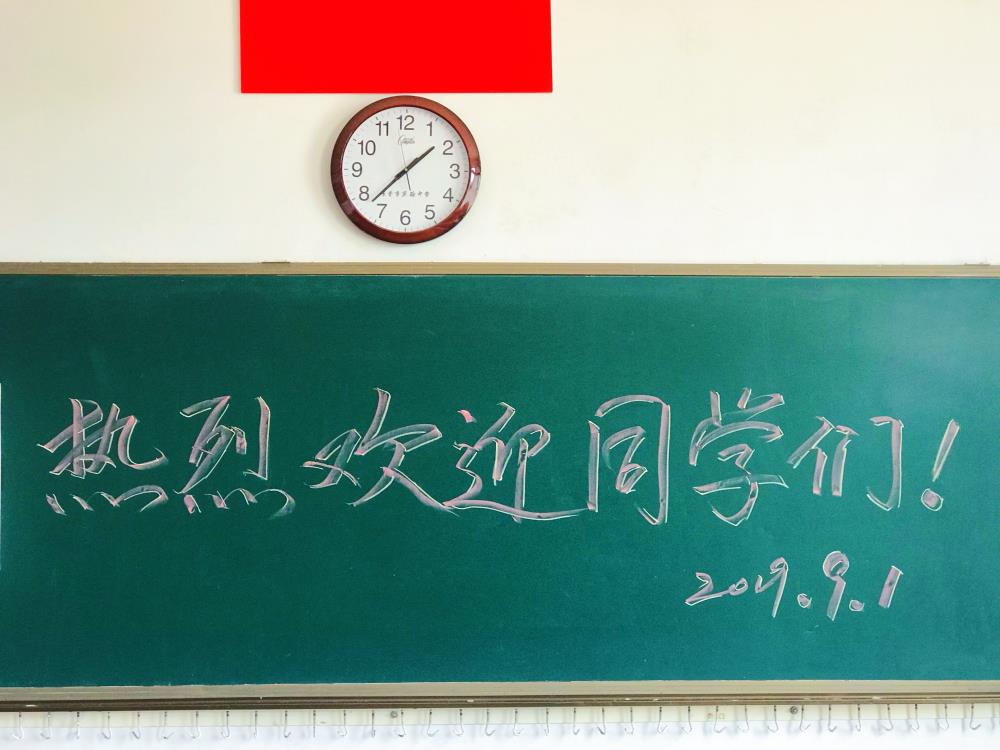 12
11
1
10
2
9
3
8
4
7
5
6
热烈欢迎同学们!
2019.9.1